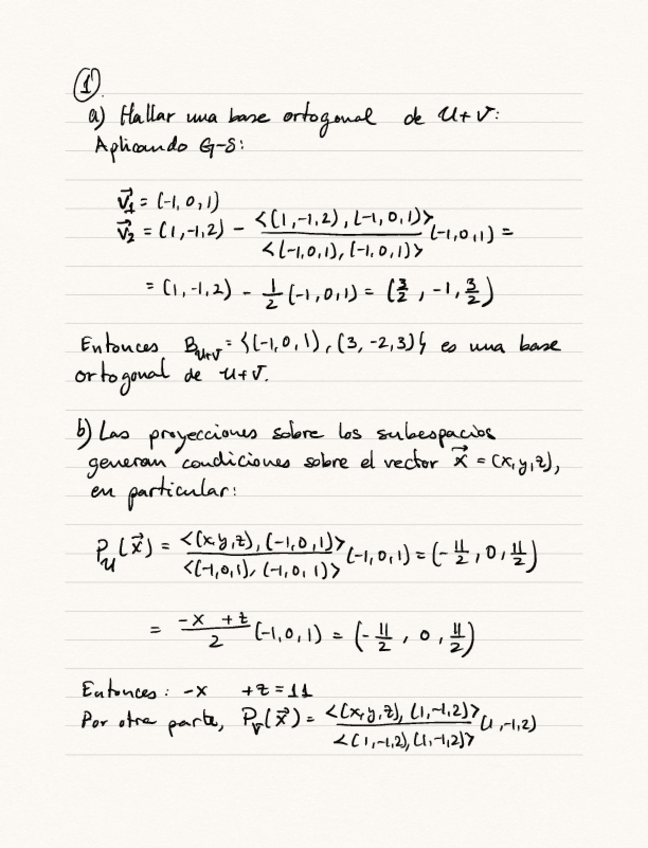 ①
a) Hallar una base ortogonal de U+V:
Aplicando G-S:
v⃗₁ = (-1, 0, 1)
v⃗₂ = (1,-1,2) - <(1,-1,2), (-1,0,1)> / <(-1,0,1), (-1,0,1)> (-1,0,1) =
= (1,-1,2) - 1/2 (-1,0,1) = (3/2, -1, 3/2)
Entonces B_{U+V} = {(-1,0,1), (3,-2,3)} es una base
ortogonal de U+V.
b) Las proyecciones sobre los subespacios
generan condiciones sobre el vector x⃗ = (x,y,z),
en particular:
P_U(x⃗) = <(x,y,z), (-1,0,1)> / <(-1,0,1), (-1,0,1)> (-1,0,1) = (-11/2, 0, 11/2)
= (-x +z)/2 (-1,0,1) = (-11/2, 0, 11/2)
Entonces: -x +z = 11
Por otra parte, P_V(x⃗) = <(x,y,z), (1,-1,2)> / <(1,-1,2), (1,-1,2)> (1,-1,2)